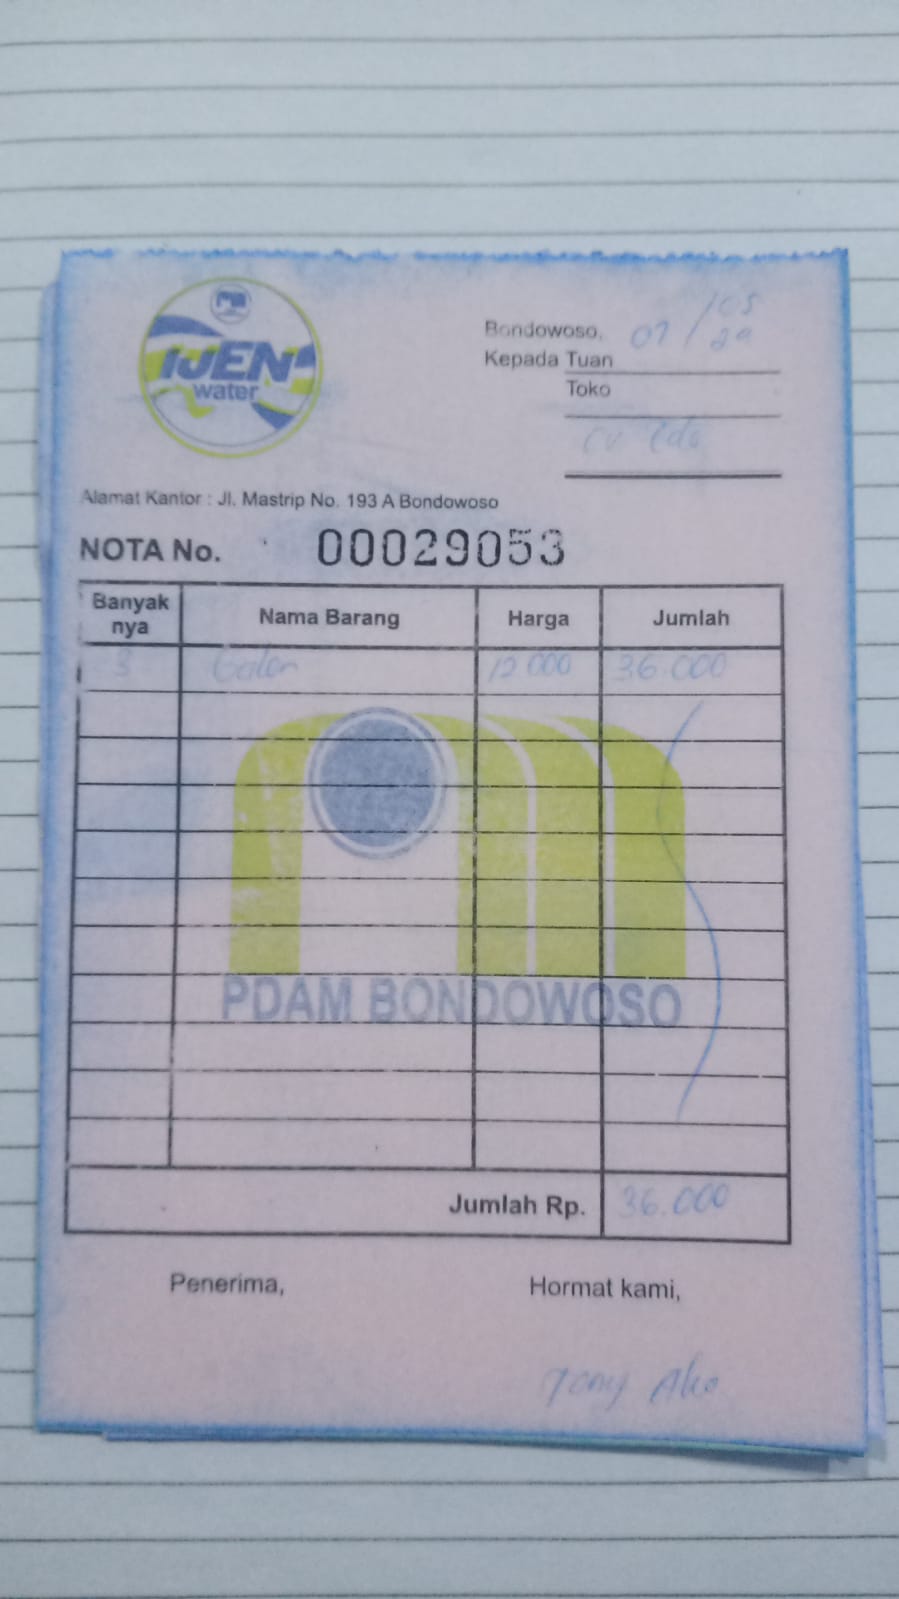 IJEN
water
Bondowoso, 07/05
Kepada Tuan
Toko
CV
Alamat Kantor : Jl. Mastrip No. 193 A Bondowoso
NOTA No. 00029053
Banyak nya Nama Barang Harga Jumlah
3 Galon 12 000 36.000
PDAM BONDOWOSO
Jumlah Rp. 36.000
Penerima, Hormat kami,
Tony